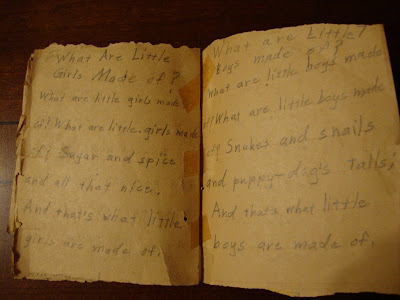 What Are Little
Girls Made of?
What are little girls made
of! What are little girls made
of! Sugar and spice
and all that nice.
And that's what little
girls are made of.
What are Little
Boys made of?
What are little boys made
of! What are little boys made
of! Snakes and snails
and puppy-dog's tails;
And that's what little
boys are made of.